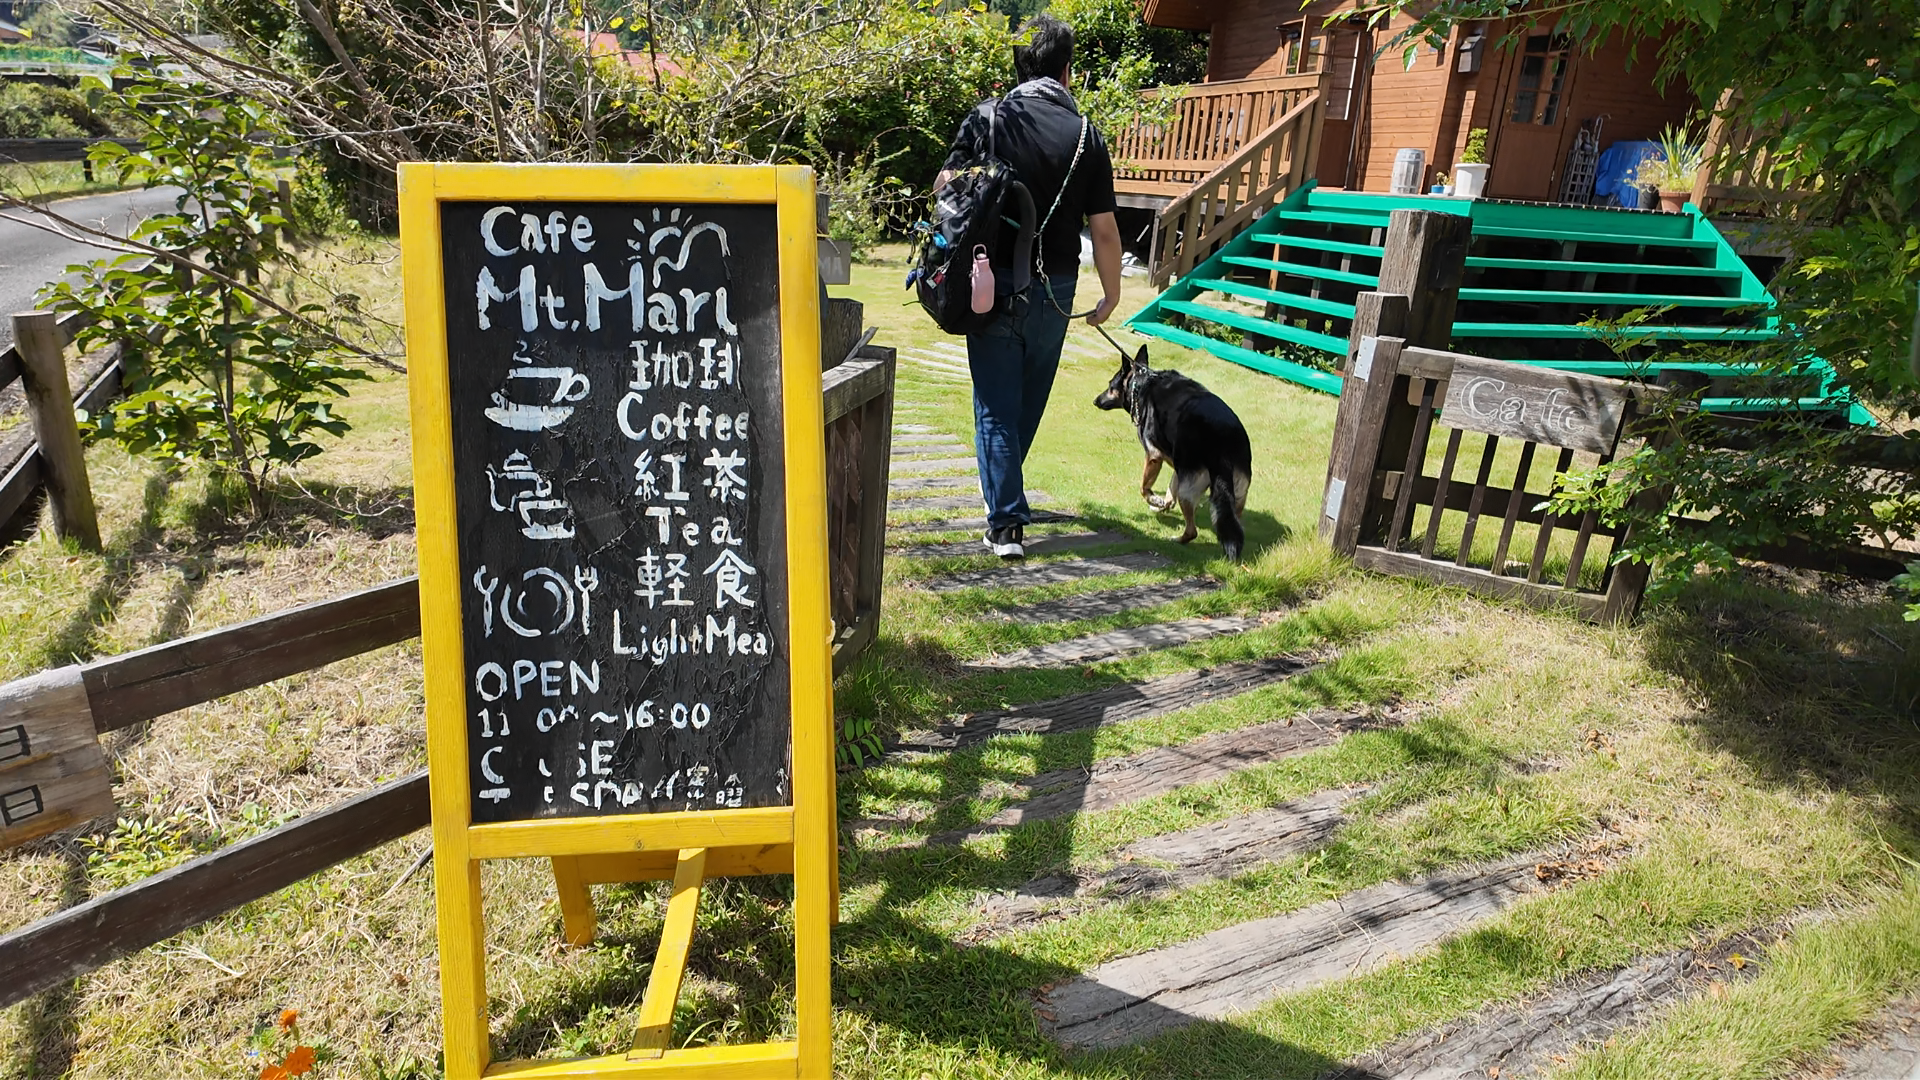 Cafe
Mt.Maru
珈琲
Coffee
紅茶
Tea
軽食
Light Mea
OPEN
11 00～16:00
Cafe
日